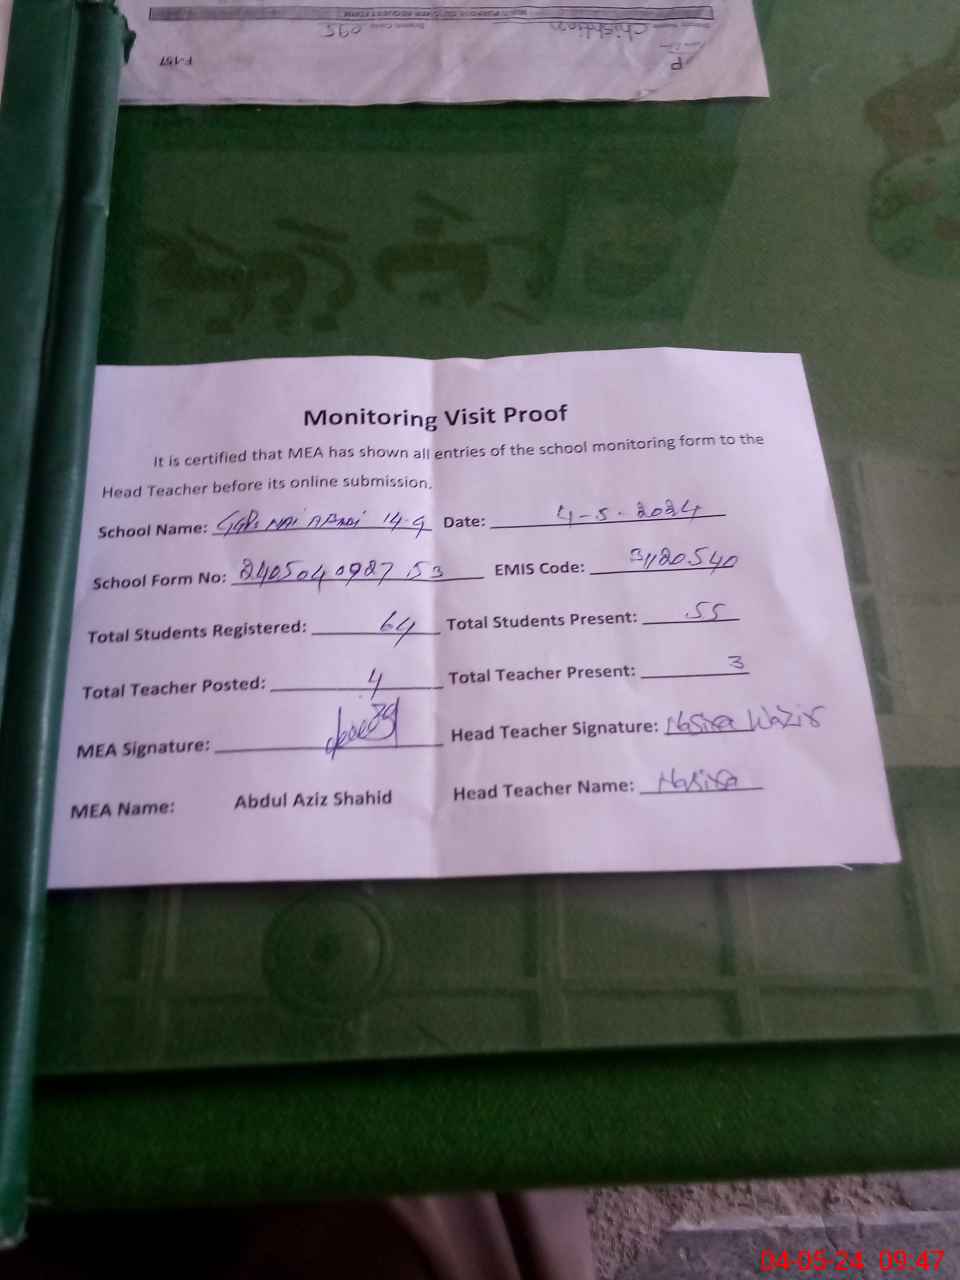 chishtian 095
F-157
P
Monitoring Visit Proof
It is certified that MEA has shown all entries of the school monitoring form to the
Head Teacher before its online submission.
School Name: GGPS NAI ABADI 14-G Date: 4-5-2024
School Form No: 2405040927 53 EMIS Code: 31120540
Total Students Registered: 64 Total Students Present: 55
Total Teacher Posted: 4 Total Teacher Present: 3
MEA Signature: Head Teacher Signature: Nasira Wazir
MEA Name: Abdul Aziz Shahid Head Teacher Name: Nasira
04-05-24 09:47